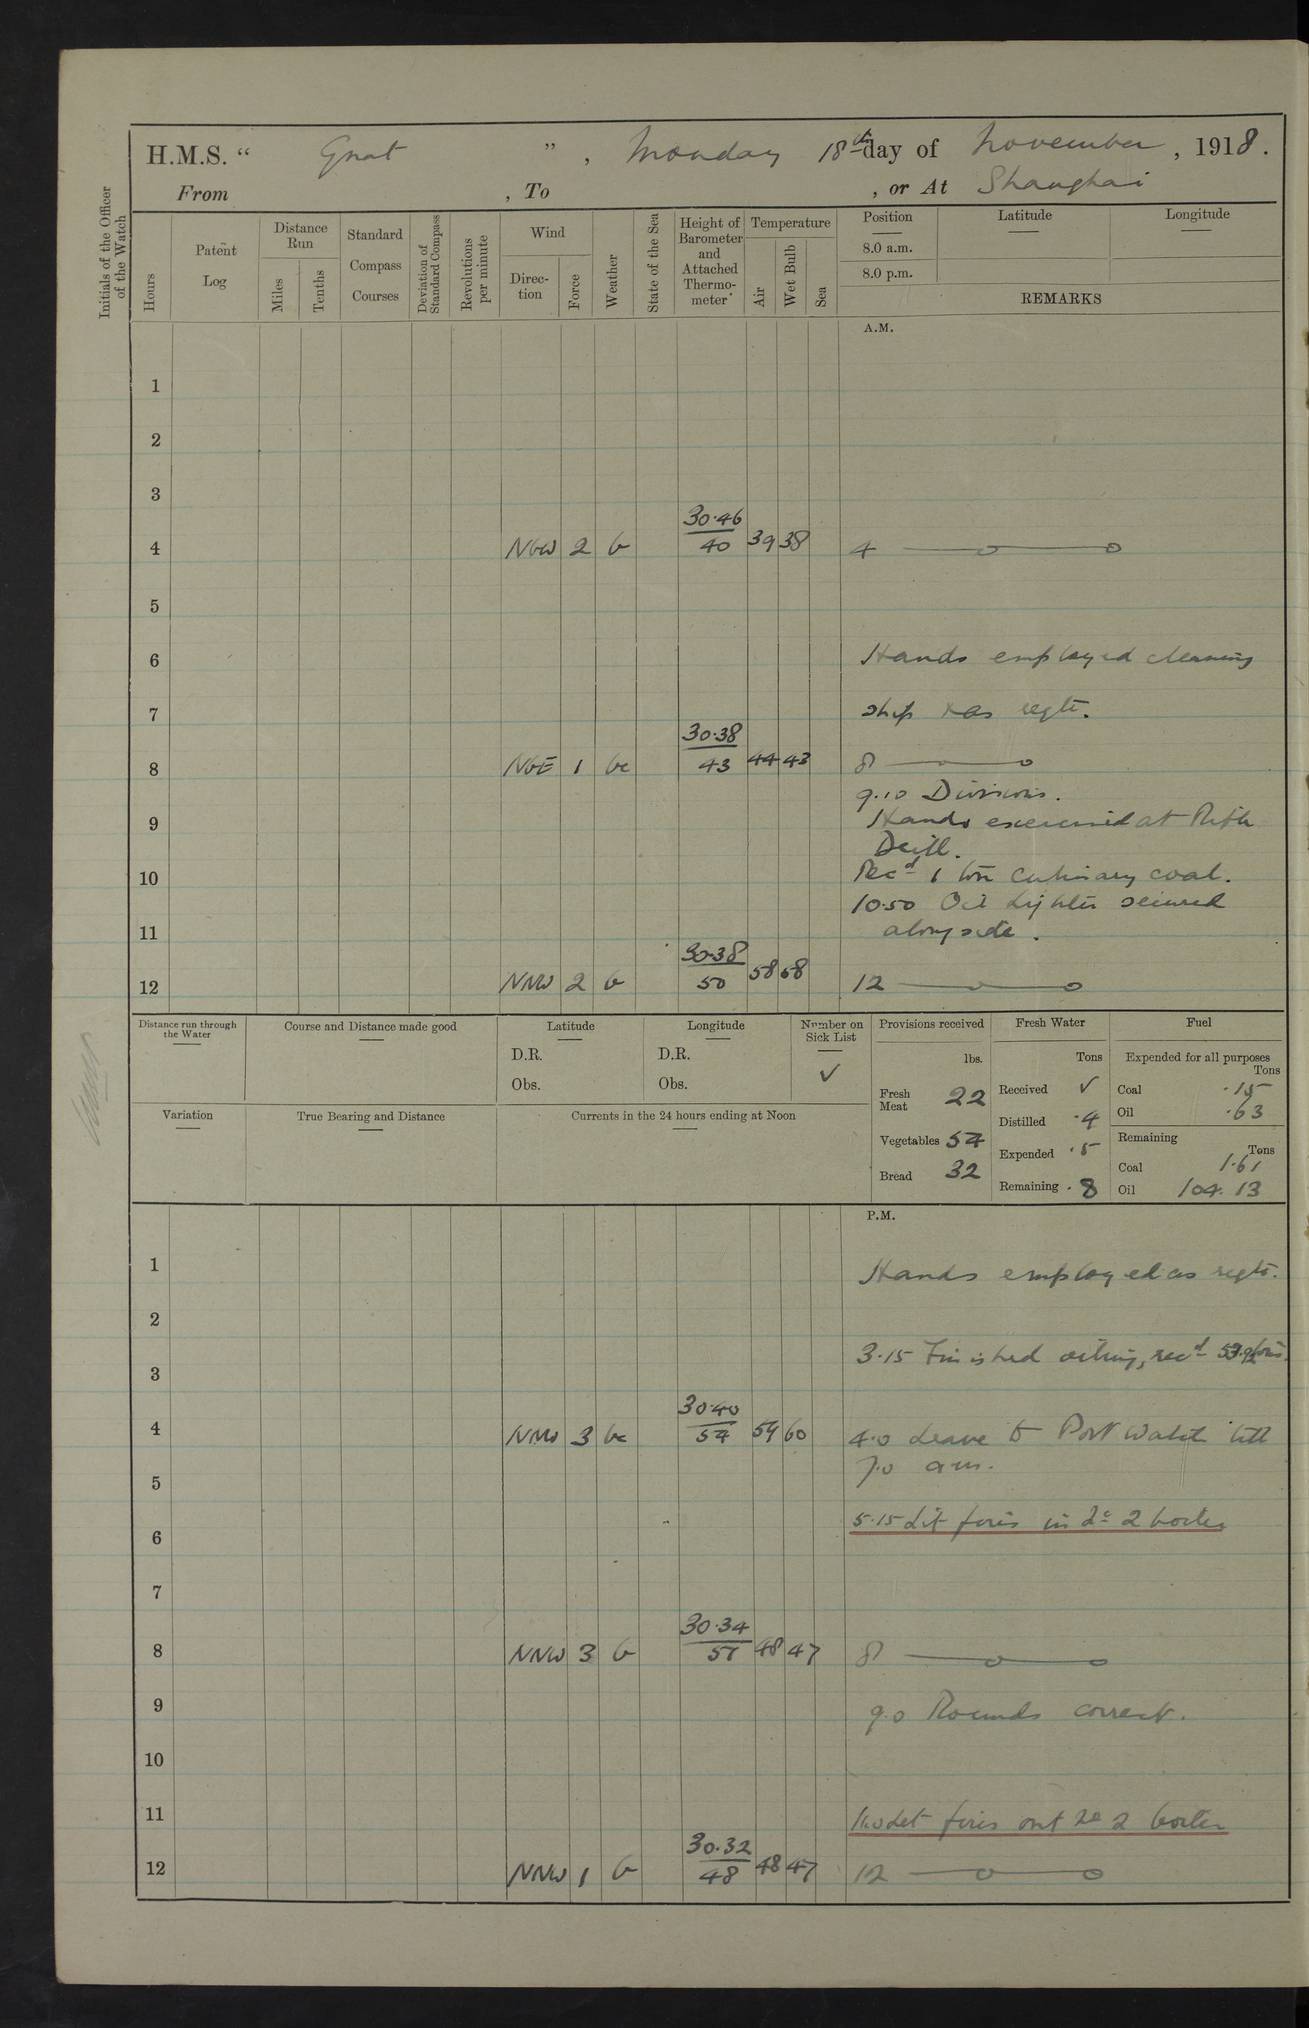 H.M.S. “ Gnat ” , Monday 18th day of November , 1918 .
From , To , or At Shanghai
Initials of the Officer of the Watch
Hours
Patent Log
Distance Run
Miles
Tenths
Standard Compass Courses
Deviation of Standard Compass
Revolutions per minute
Wind
Direction
Force
Weather
State of the Sea
Height of Barometer and Attached Thermometer
Temperature
Air
Wet Bulb
Sea
Position
8.0 a.m.
8.0 p.m.
Latitude
Longitude
REMARKS
A.M.
1
2
3
4 NbW 2 b 30.46 40 39 38 4
5
6 Hands employed cleaning
7 ship & as reqte.
8 NbE 1 bc 30.38 43 44 43 8
9.10 Divisions.
9 Hands exercised at Rifle
Drill.
10 Recd 1 ton culinary coal.
10.50 Oil Lighter secured
11 alongside.
12 NNW 2 b 30.38 50 58 58 12
Distance run through the Water
Course and Distance made good
Latitude
D.R.
Obs.
Longitude
D.R.
Obs.
Number on Sick List
✓
Variation
True Bearing and Distance
Currents in the 24 hours ending at Noon
Provisions received
lbs.
Fresh Meat 22
Vegetables 54
Bread 32
Fresh Water
Tons
Received ✓
Distilled .4
Expended .5
Remaining .8
Fuel
Expended for all purposes
Tons
Coal .15
Oil .63
Remaining
Tons
Coal 1.61
Oil 104.13
P.M.
1 Hands employed as reqte.
2
3.15 Finished oiling, recd tons
3
4 NNW 3 bc 30.40 54 59 60 4.0 Leave to Port Watch till
7.0 am.
5
5.15 Lit fires in No 2 boiler
6
7
8 NNW 3 b 30.34 51 48 47 8
9 9.0 Rounds correct.
10
11 11.0 Let fires out No 2 boiler
12 NNW 1 b 30.32 48 48 47 12